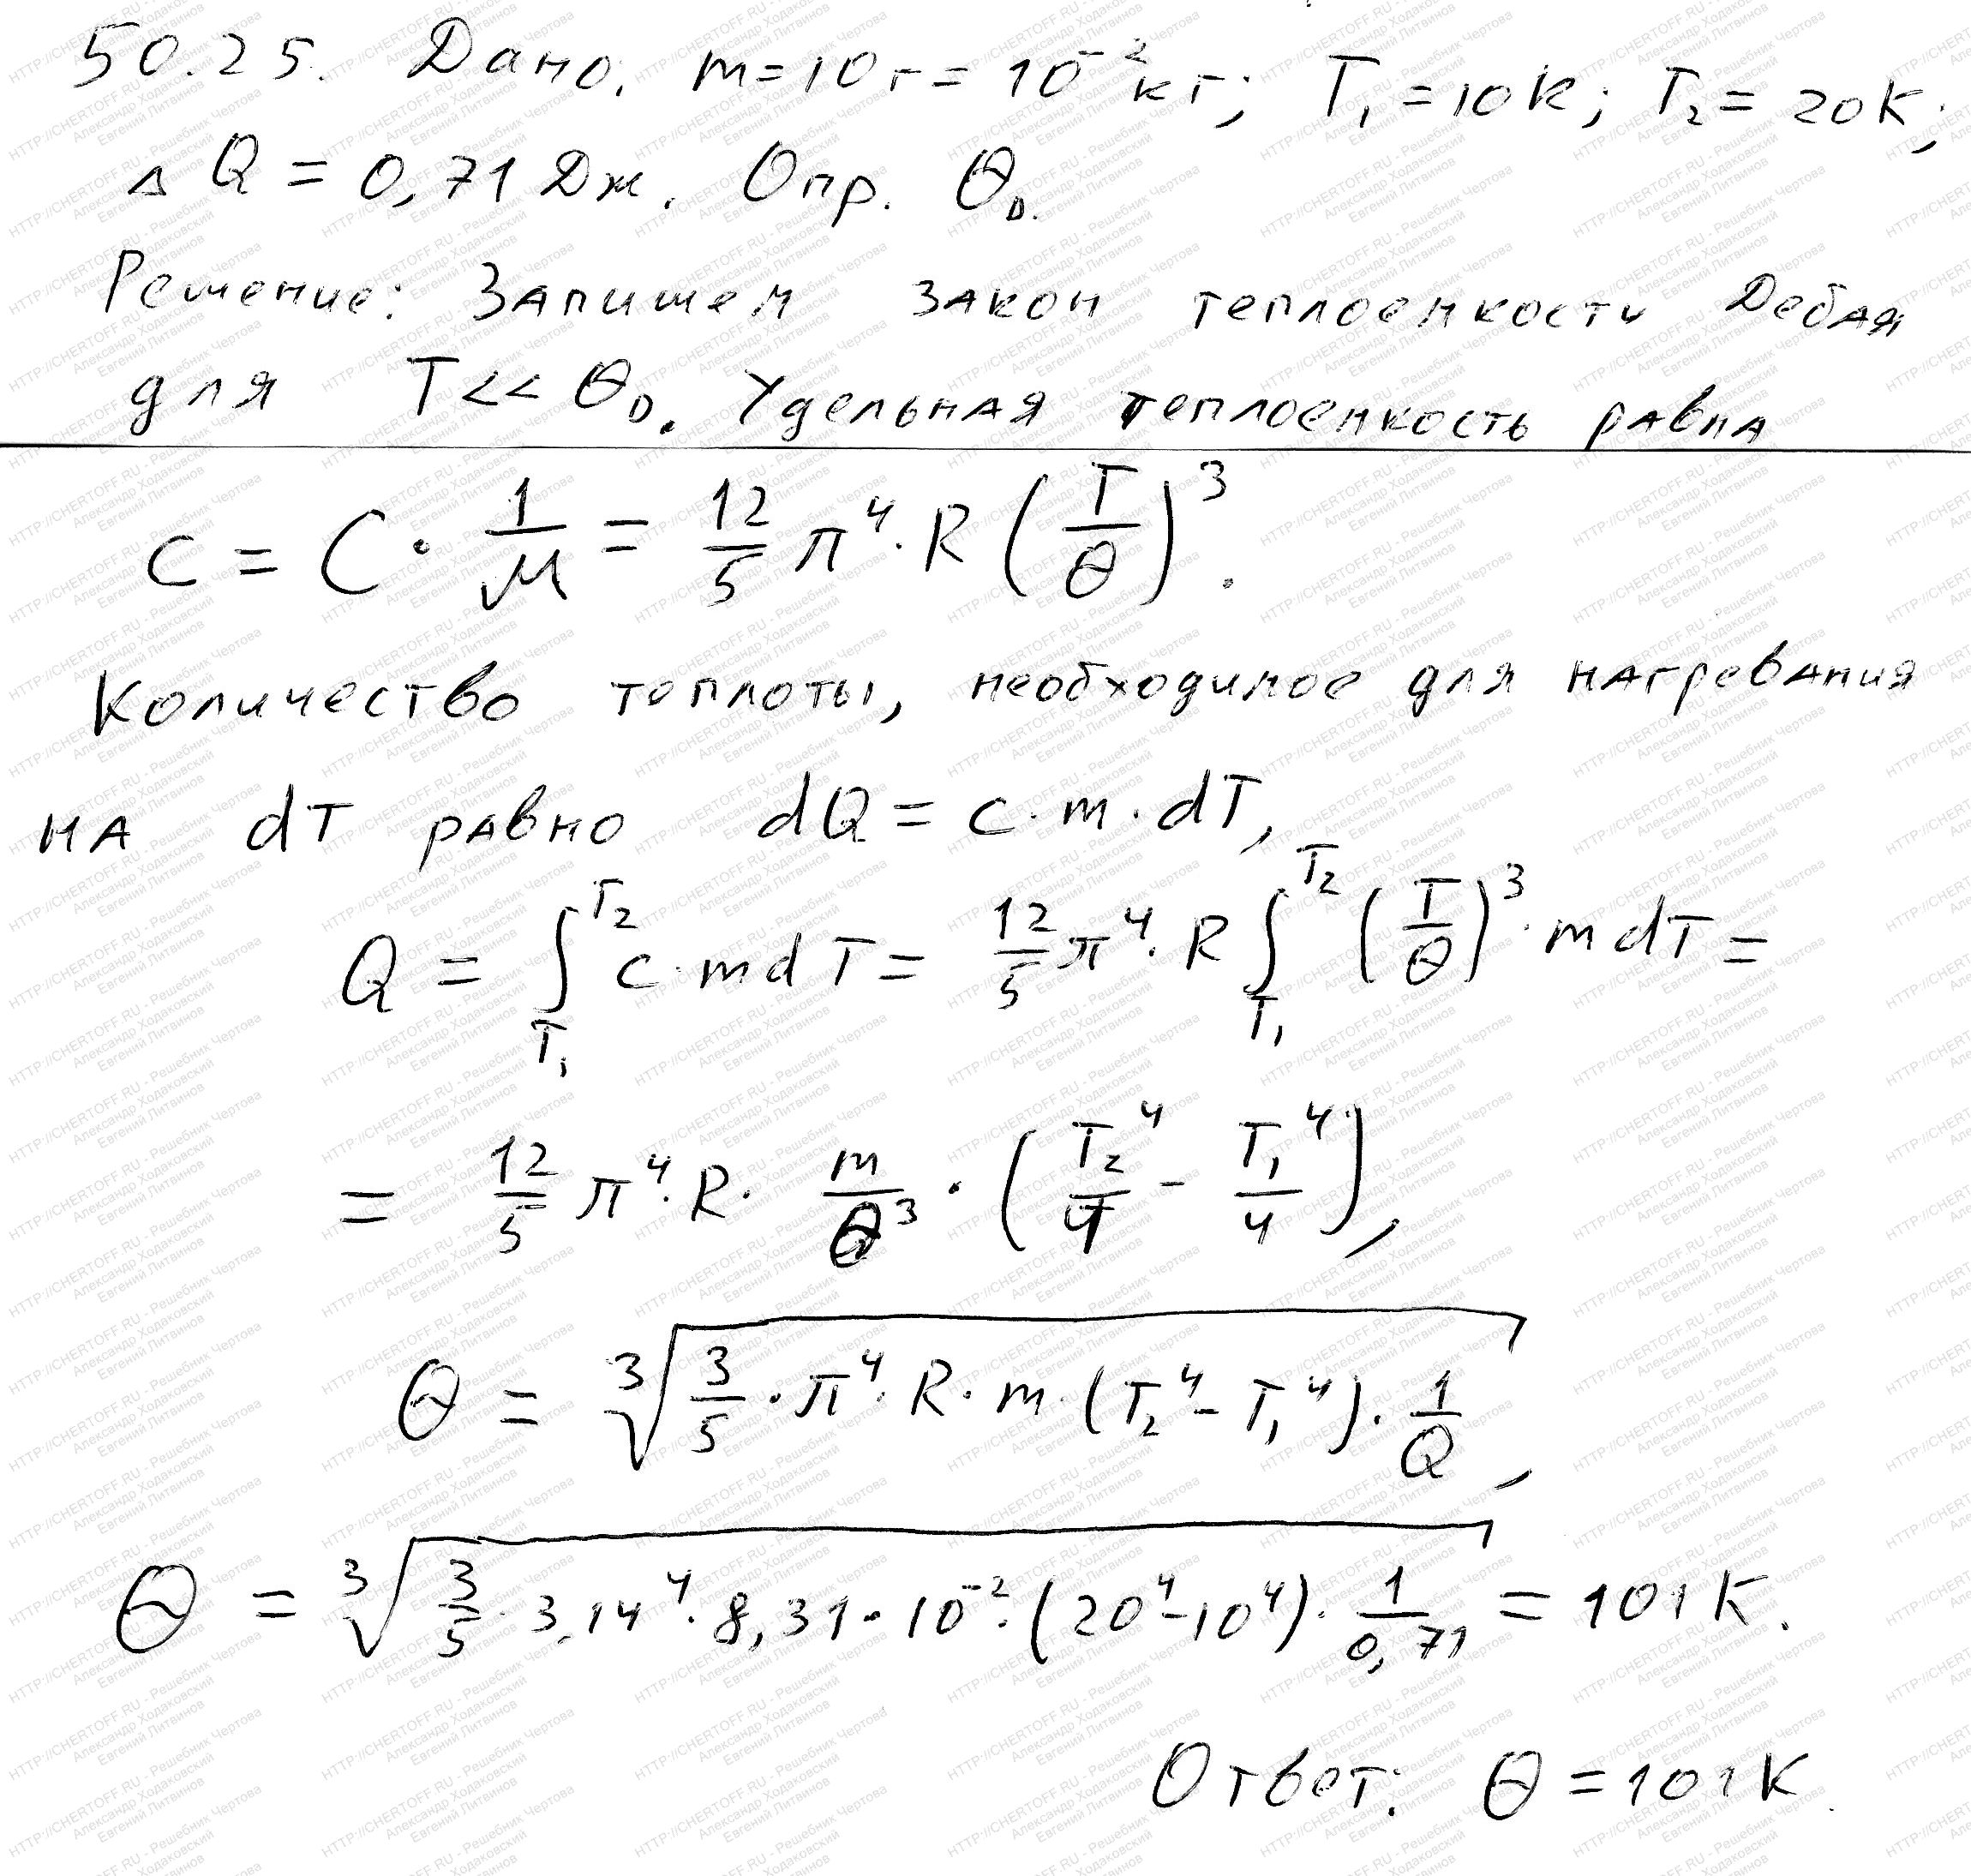 50.25. Дано: m=10г=10⁻²кг; T₁=10K; T₂=20K;
ΔQ=0,71 Дж. Опр. θ_D.
Решение: Запишем закон теплоемкости Дебая
для T<<θ_D. Удельная теплоемкость равна
c = C · 1/μ = 12/5 π⁴·R (T/θ)³.
Количество теплоты, необходимое для нагревания
на dT равно dQ = c·m·dT,
Q = ∫_{T₁}^{T₂} c·mdT = 12/5 π⁴·R ∫_{T₁}^{T₂} (T/θ)³·mdT =
= 12/5 π⁴·R· m/θ³ · (T₂⁴/4 - T₁⁴/4),
θ = ∛(3/5 · π⁴·R·m·(T₂⁴-T₁⁴)· 1/Q),
θ = ∛(3/5 · 3,14⁴·8,31·10⁻²·(20⁴-10⁴)· 1/0,71) = 101K.
Ответ: θ=101K.
HTTP://CHERTOFF.RU - Решебник Чертова
Александр Ходаковский
Евгений Литвинов